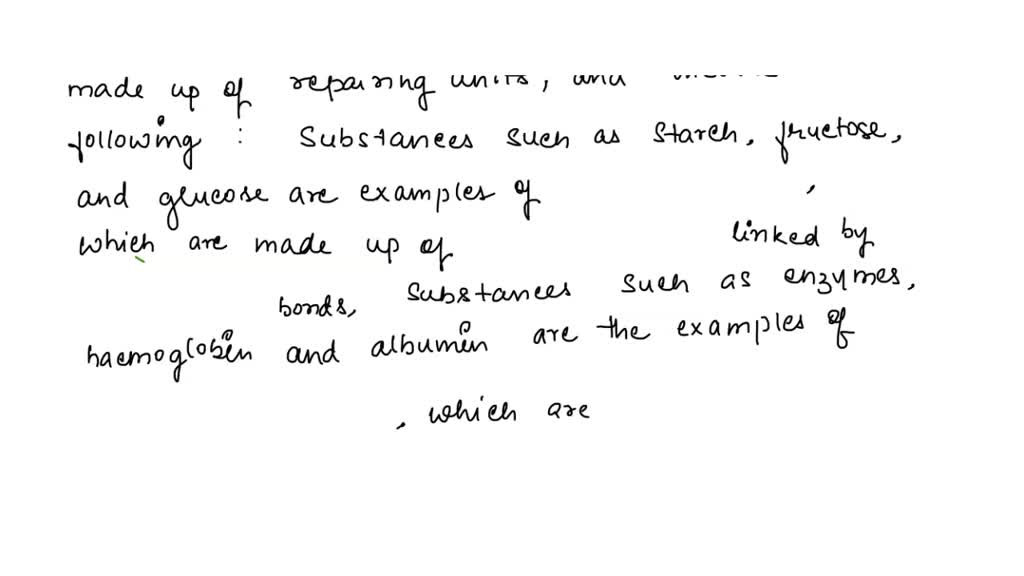 made up of repairing units, and
following : Substances such as starch, fructose,
and glucose are examples of ,
which are made up of linked by
bonds, Substances such as enzymes,
haemoglobin and albumin are the examples of
, which are